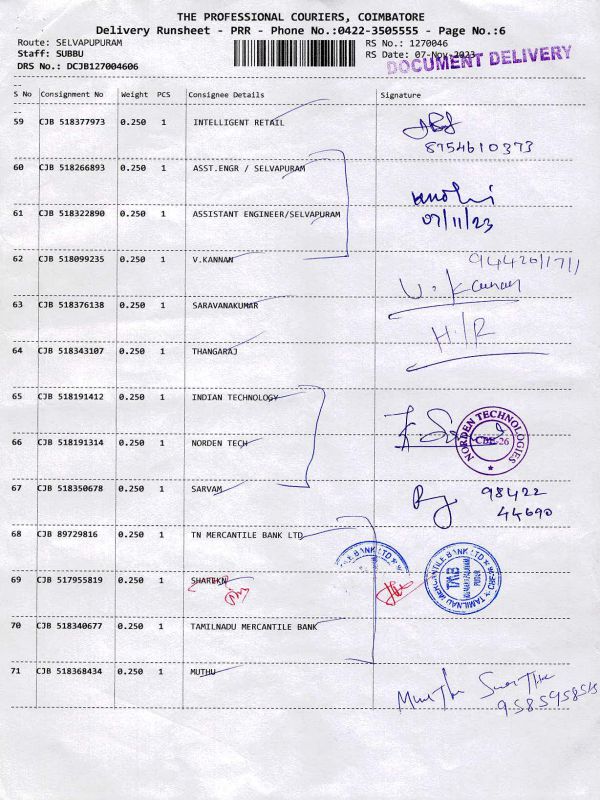 THE PROFESSIONAL COURIERS, COIMBATORE
Delivery Runsheet - PRR - Phone No.:0422-3505555 - Page No.:6
Route: SELVAPUPURAM
RS No.: 1270046
Staff: SUBBU
RS Date: 07-Nov-2023
DRS No.: DCJB127004606
DOCUMENT DELIVERY
S No Consignment No Weight PCS Consignee Details Signature
59 CJB 518377973 0.250 1 INTELLIGENT RETAIL
8754610373
60 CJB 518266893 0.250 1 ASST.ENGR / SELVAPURAM
61 CJB 518322890 0.250 1 ASSISTANT ENGINEER/SELVAPURAM
07/11/23
62 CJB 518099235 0.250 1 V.KANNAN
V. Kannan
63 CJB 518376138 0.250 1 SARAVANAKUMAR
H/R
64 CJB 518343107 0.250 1 THANGARAJ
65 CJB 518191412 0.250 1 INDIAN TECHNOLOGY
NORDEN TECHNOLOGIES
CBE-26
66 CJB 518191314 0.250 1 NORDEN TECH
67 CJB 518350678 0.250 1 SARVAM
98422
44690
68 CJB 89729816 0.250 1 TN MERCANTILE BANK LTD
E BANK LTD
TAMILNAD MERCANTILE BANK LTD
TMB
69 CJB 517955819 0.250 1
70 CJB 518340677 0.250 1 TAMILNADU MERCANTILE BANK
71 CJB 518368434 0.250 1 MUTHU